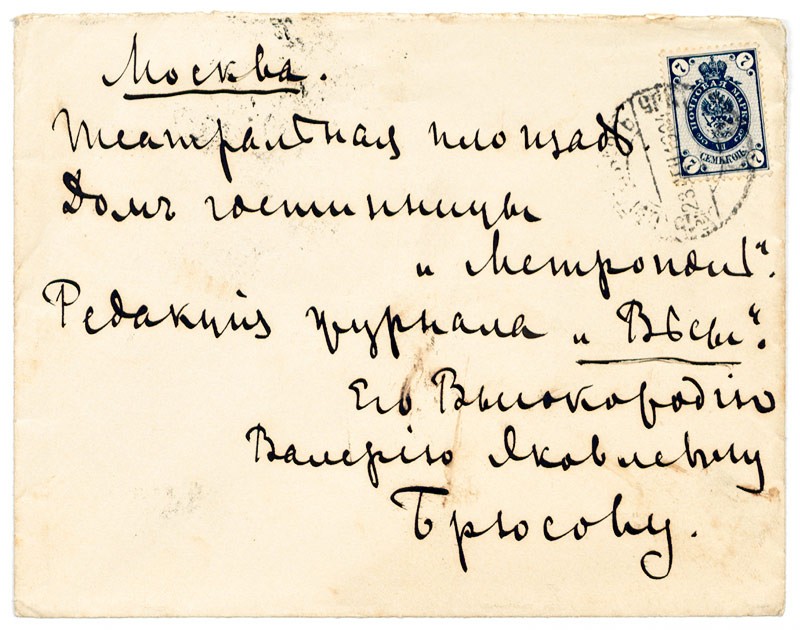 Москва.
Театральная площадь.
Домъ гостинницы
„Метрополь“.
Редакція журнала „Вѣсы“.
Его Высокородію
Валерію Яковлевичу
Брюсову.
7 7
ПОЧТОВАЯ МАРКА
СЕМЬ КОП.
7 7